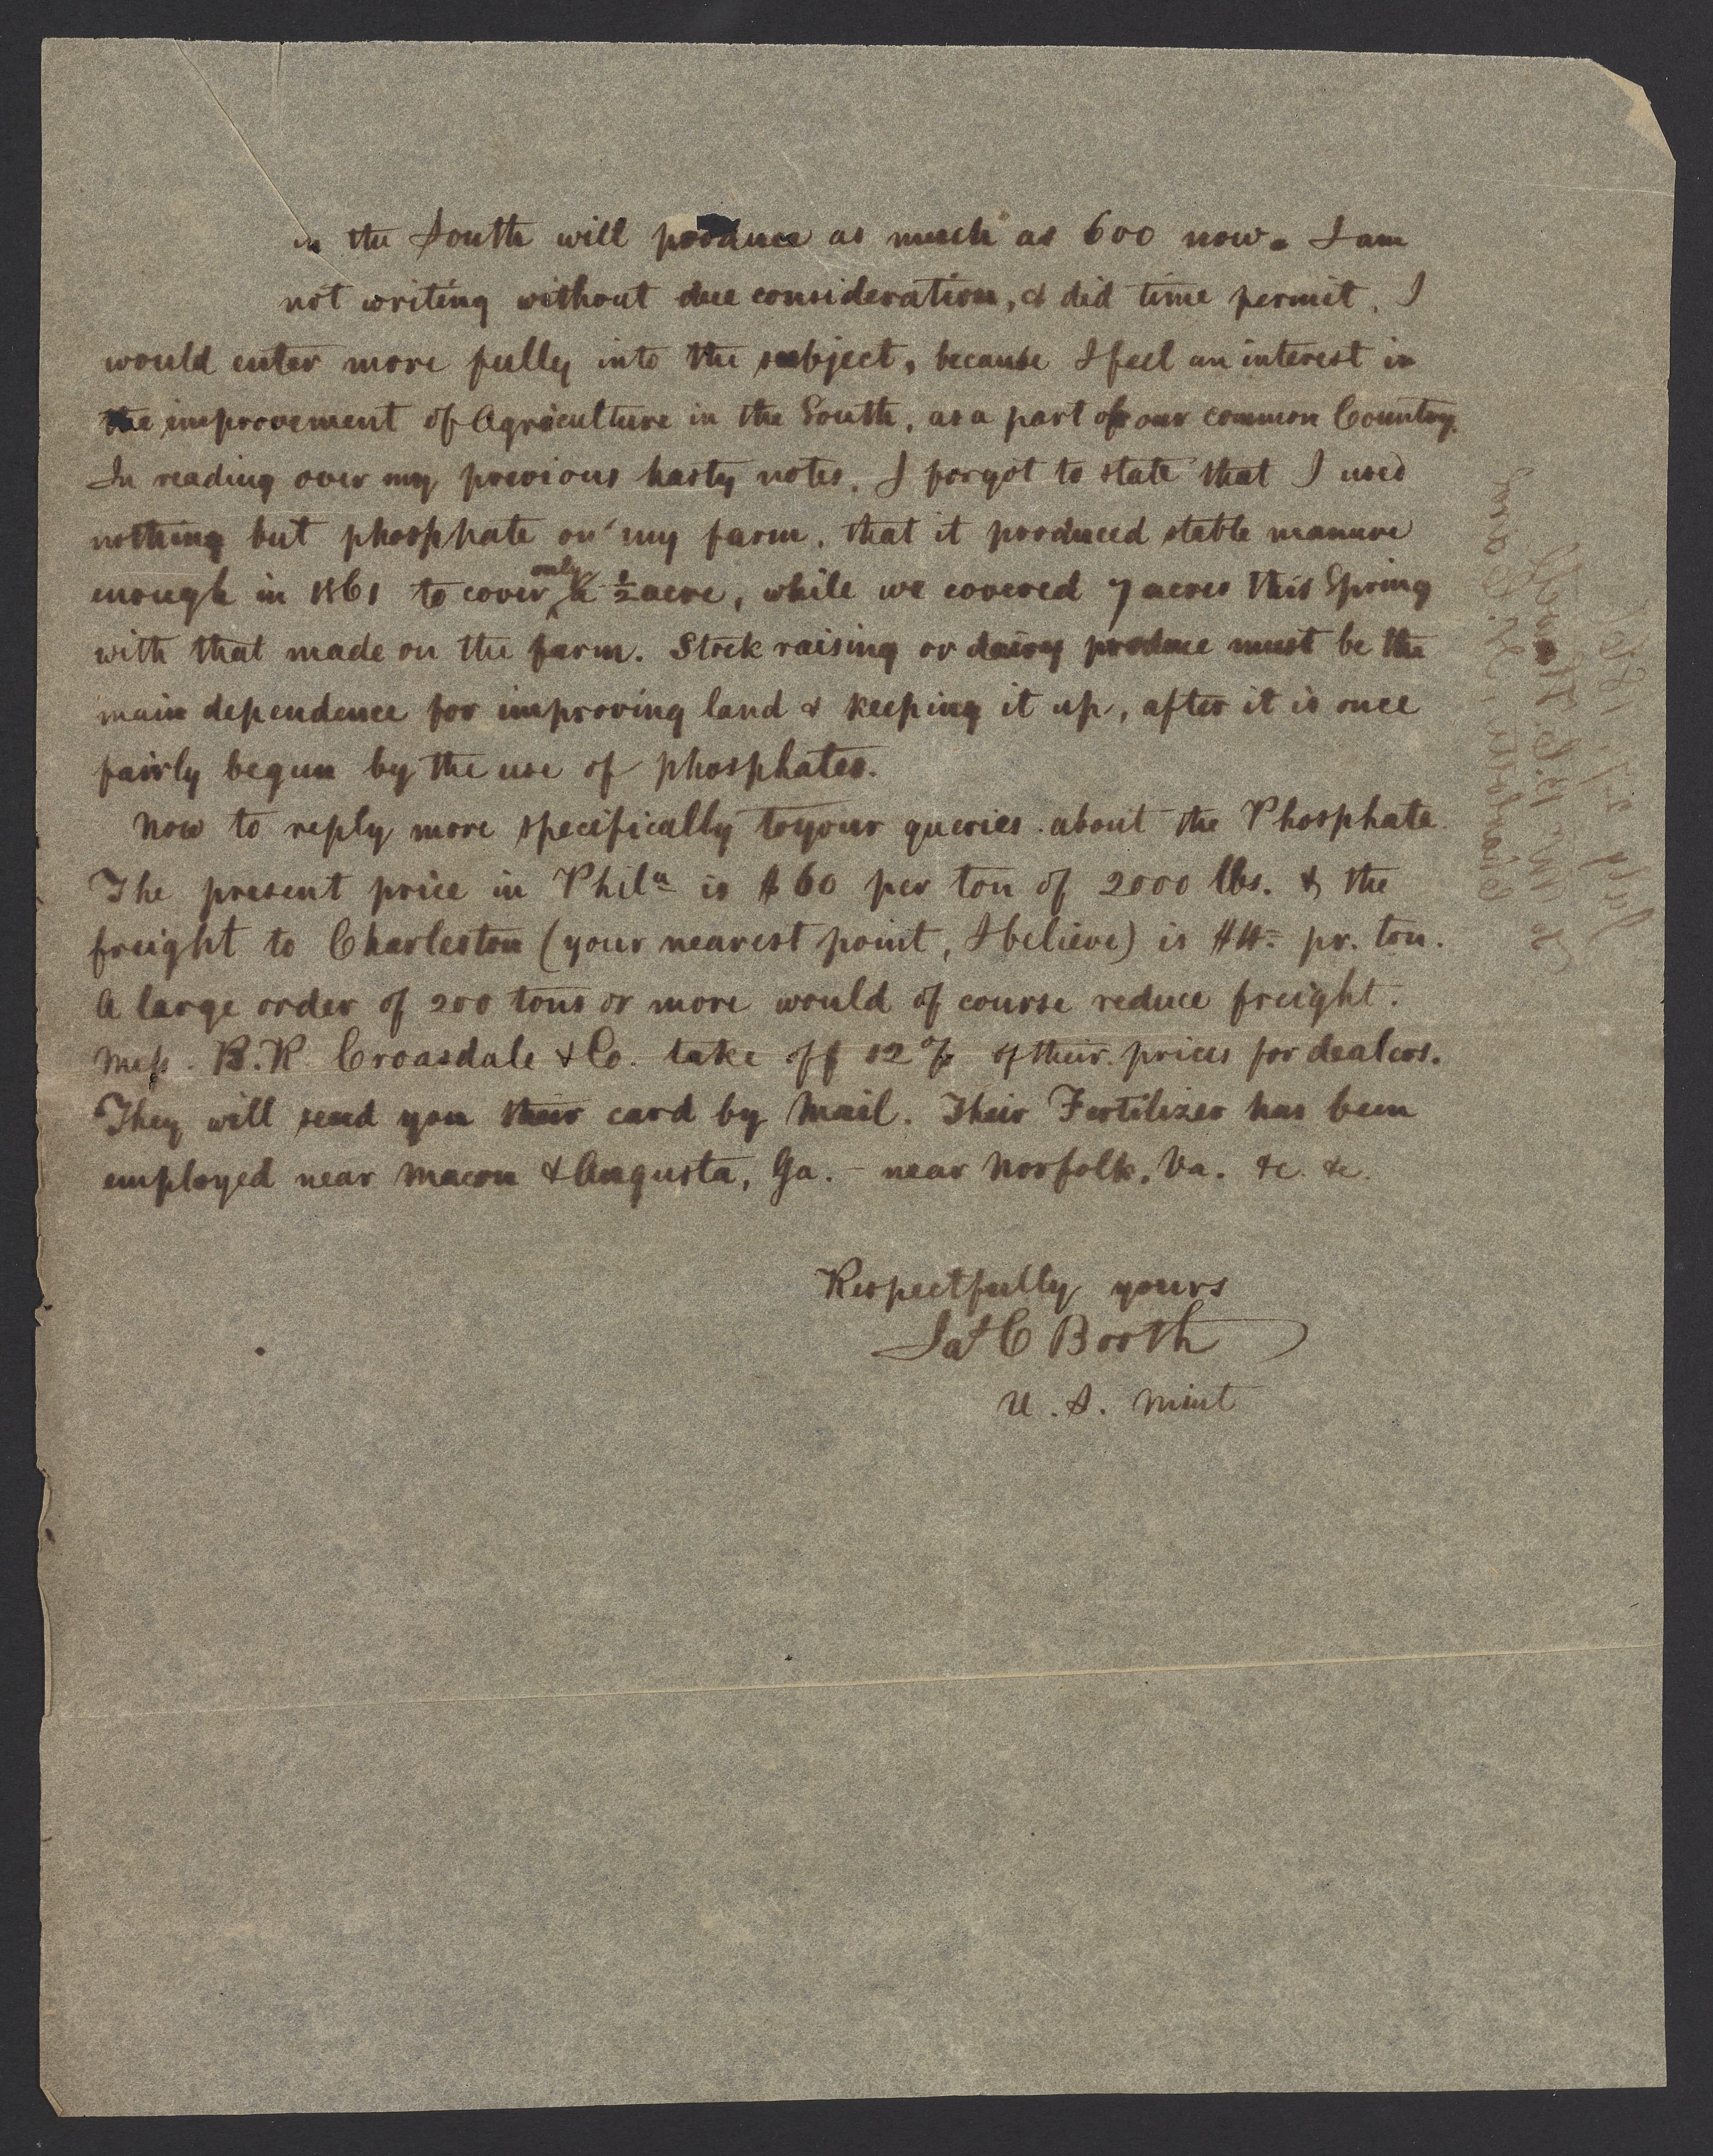 in the South will produce as much as 600 now. I am
not writing without due consideration, & did time permit, I
would enter more fully into the subject, because I feel an interest in
the improvement of Agriculture in the South, as a part of our common Country.
In reading over my previous hasty notes, I forgot to state that I used
nothing but phosphate on my farm, that it produced stable manure
enough in 1861 to cover only ½ acre, while we covered 7 acres this Spring
with that made on the farm. Stock raising or dairy produce must be the
main dependence for improving land & keeping it up, after it is once
fairly begun by the use of phosphates.
Now to reply more specifically to your queries about the Phosphate.
The present price in Phila is $60 per ton of 2000 lbs. & the
freight to Charleston (your nearest point, I believe) is $4= pr. ton.
A large order of 200 tons or more would of course reduce freight.
Mess. B.R. Croasdale & Co. take off 12 % of their prices for dealers.
They will send you their card by Mail. Their Fertilizer has been
employed near Macon & Augusta, Ga. - near Norfolk, Va. &c. &c.
Respectfully yours
Jas C Booth
U. S. Mint